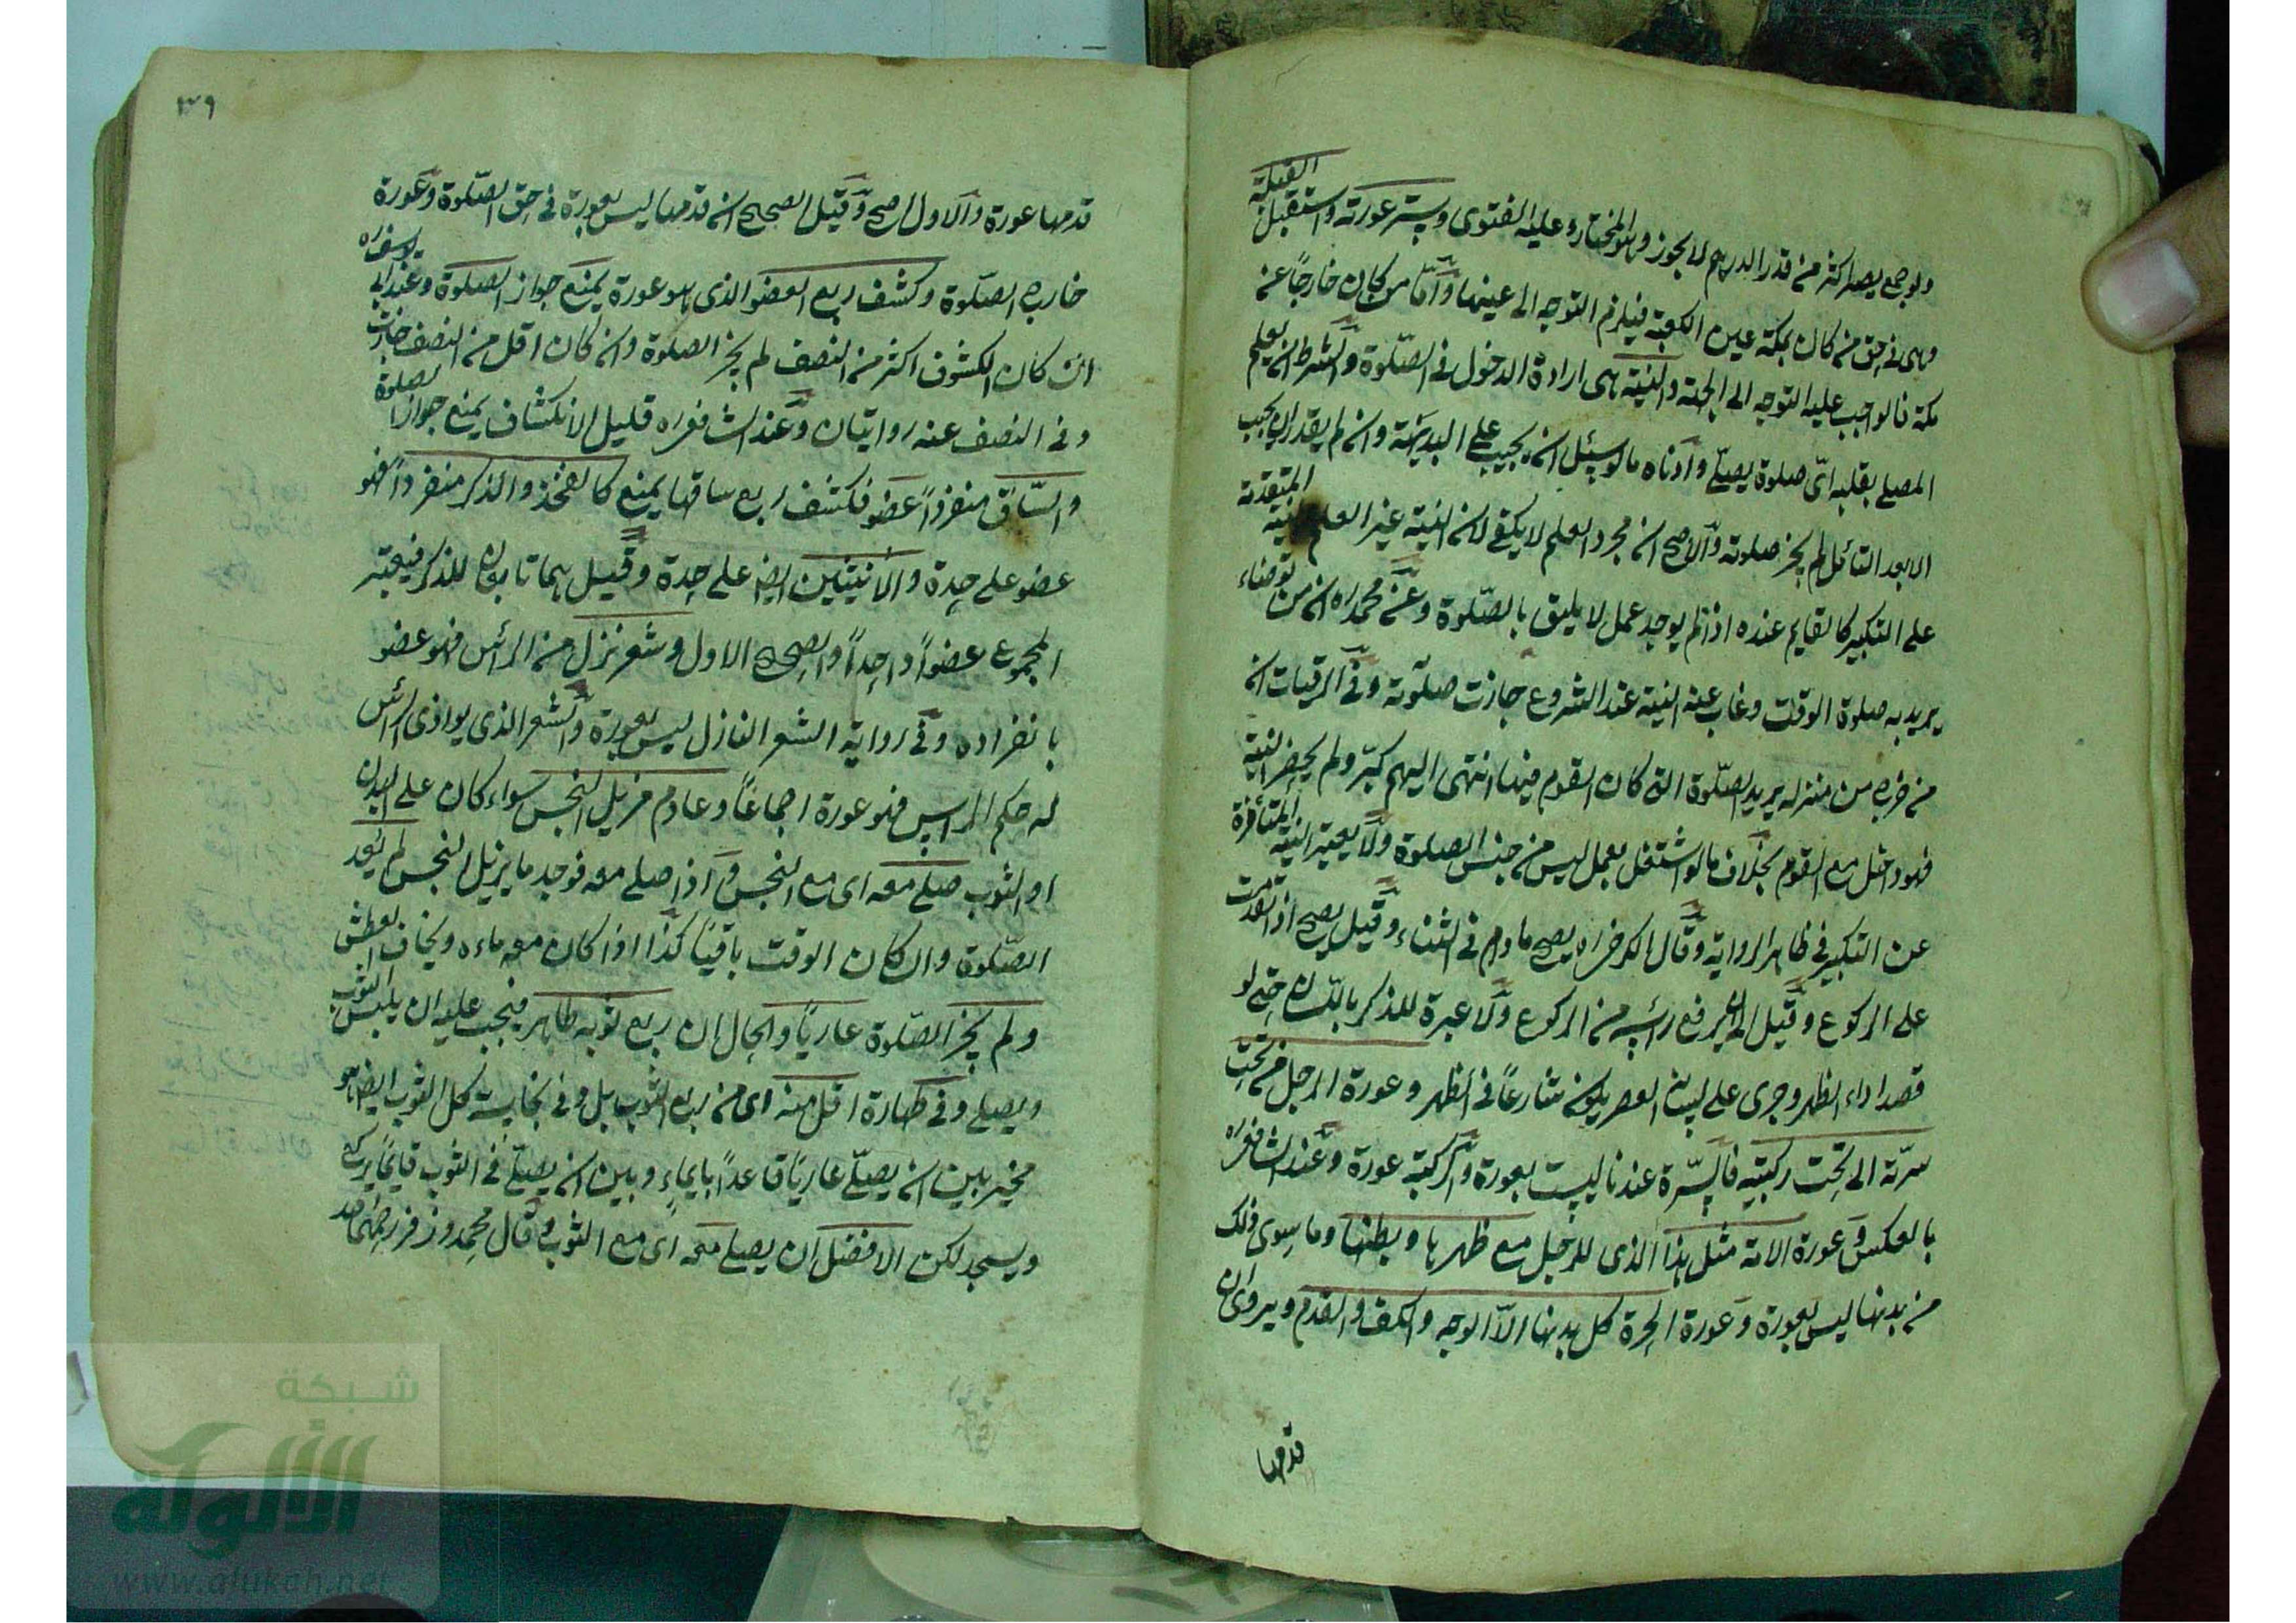 ولو جمع يصير اكثر من قدر الدرهم لا يجوز وهو المختار وعليه الفتوى وستر عورته واستقبل القبلة
وهى فى حق من كان بمكة عين الكعبة فيلزم التوجه الى عينها وأما من كان خارجا عن
مكة فالواجب عليه التوجه الى الجهة والنية هى ارادة الدخول فى الصلوة والشرط ان يعلم
المصلى بقلبه اىّ صلوة يصلّى وادناه ما لو سئل ان يجيب على البديهة وان لم يقدر ان يجيب
الا بعد التأمل لم يجز صلوته والاصح ان مجرد العلم لا يكفى لان النية غير العلم المتقدمة
على التكبير كالقايم عنده اذا لم يوجد عمل لا يليق بالصلوة وعن محمد ره ان من توضاء
يريد به صلوة الوقت وغاب عنه النية عند الشروع جازت صلوته وفى الرقيات ان
من خرج من منزله يريد الصلوة التى كان القوم فيها انتهى اليهم كبّر ولم يحضر النية
فهو داخل مع القوم بخلاف ما لو اشتغل بعمل ليس من جنس الصلوة ولا يعتبر النية المتأخرة
عن التكبير فى ظاهر الرواية وقال الكرخى ره يصح مادام فى الثناء وقيل يصح اذا تقدمت
على الركوع وقيل الى ان يرفع رأسه من الركوع ولا عبرة للذكر باللسان حتى لو
قصد اداء الظهر وجرى على لسانه العصر يكون شارعاً فى الظهر وعورة الرجل من تحت
سرّته الى تحت ركبتيه فالسّرة عندنا ليست بعورة والركبة عورة وعند الشافعى ره
بالعكس وعورة الامة مثل هذا الذى للرجل مع ظهرها وبطنها وما سوى ذلك
من بدنها ليس بعورة وعورة الحرة كل بدنها الاّ الوجه والكف والقدم ويروى ان
قدمها
٣٩
قدمها عورة والاول اصح وقيل الصحيح ان قدمها ليس بعورة فى حق الصلوة وعورة
خارج الصلوة وكشف ربع العضو الذى هو عورة يمنع جواز الصلوة وعند ابى يوسف ره
ان كان المكشوف اكثر من النصف لم يجز الصلوة وان كان اقل من النصف جازت
وفى النصف عنه روايتان وعند الشافعى ره قليل الانكشاف يمنع جواز الصلوة
والسّاق منفرداً عضو فكشف ربع ساقها يمنع كالفخذ والذكر منفرداً فهو
عضو على حدة والانثيين ايضا على حدة وقيل هما تابعان للذكر فيعتبر
المجموع عضواً واحداً والصحيح الاول وشعر نزل من الرأس فهو عضو
بانفراده وفى رواية الشعر النازل ليس بعورة والشعر الذى يوازى الرأس
له حكم الراس فهو عورة اجماعاً وعادم مزيل النجس سواء كان على البدن
او الثوب صلى معه اى مع النجس واذا صلى معه فوجد ما يزيل النجس لم يعد
الصلوة وان كان الوقت باقياً كذا اذا كان معه ماء ويخاف العطش
ولم يجز الصلوة عارياً والحال ان ربع ثوبه طاهر فيجب عليه ان يلبس الثوب
ويصلى وفى طهارة اقل منه اى من ربع الثوب بل وفى نجاسة كل الثوب ايضا هو
مخير بين ان يصلّى عارياً قاعداً بايماء وبين ان يصلّى فى الثوب قايماً يركع
ويسجد لكن الافضل ان يصلى معه اى مع الثوب وقال محمد وزفر رحمهما الله
شبكة
الألوكة
www.alukah.net